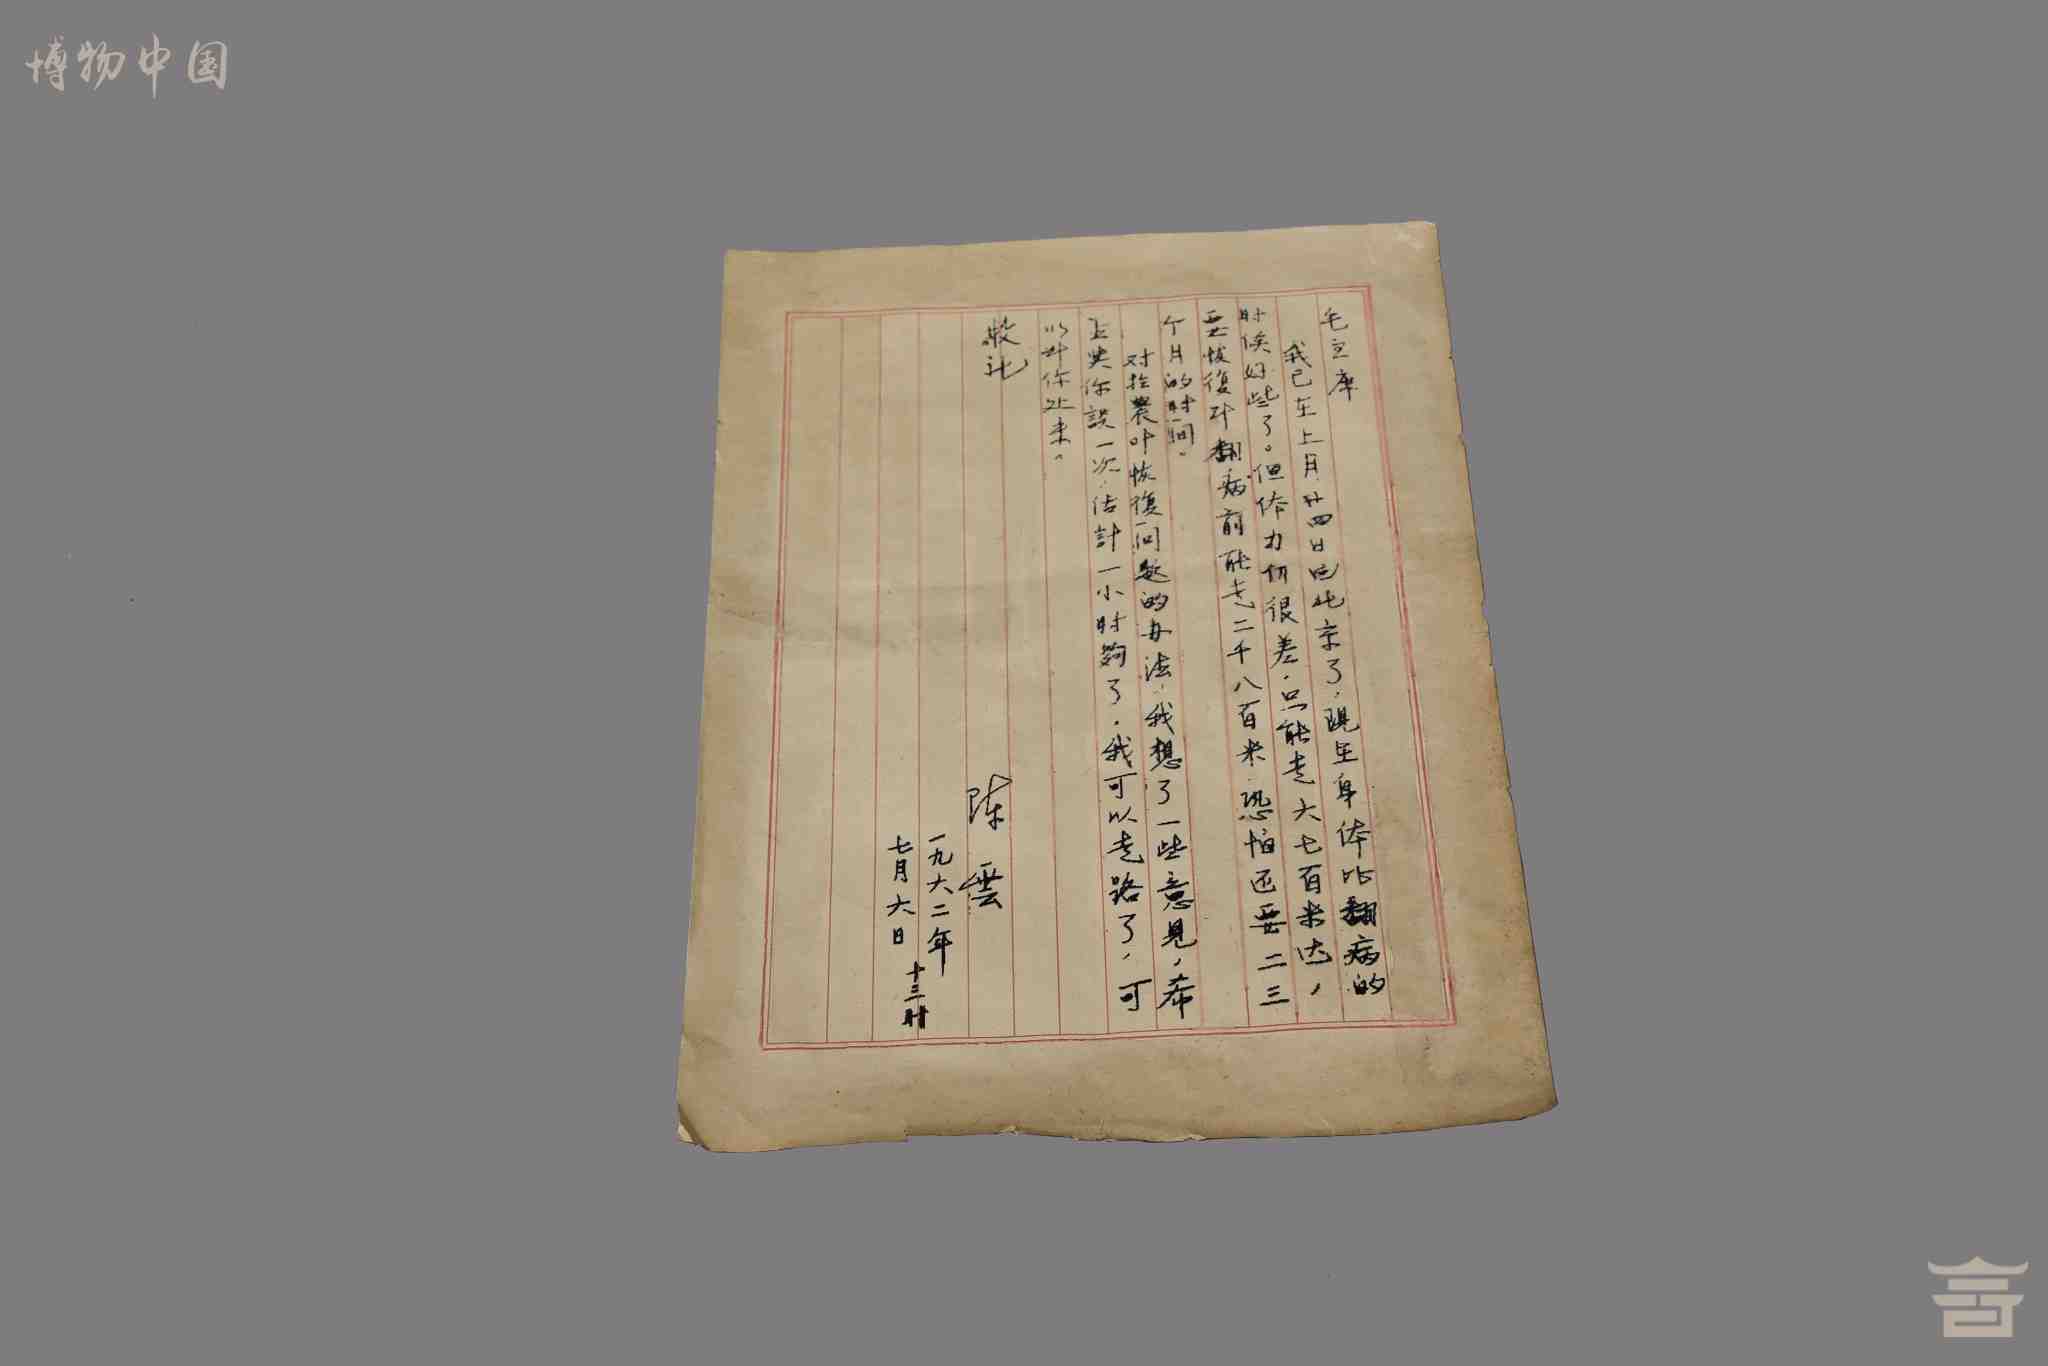 博物中国
毛主席
我已在上月廿四日回北京了,现在身体比翻病的
时候好些了。但体力仍很差,只能走六七百米达,
要恢復到翻病前能走二千八百米,恐怕还要二三
个月的时间。
对於農业恢復问题的办法,我想了一些意見,希
望與你談一次,估計一小时夠了。我可以走路了,可
以到你处来。
敬礼
陈雲
一九六二年
七月六日
十三时